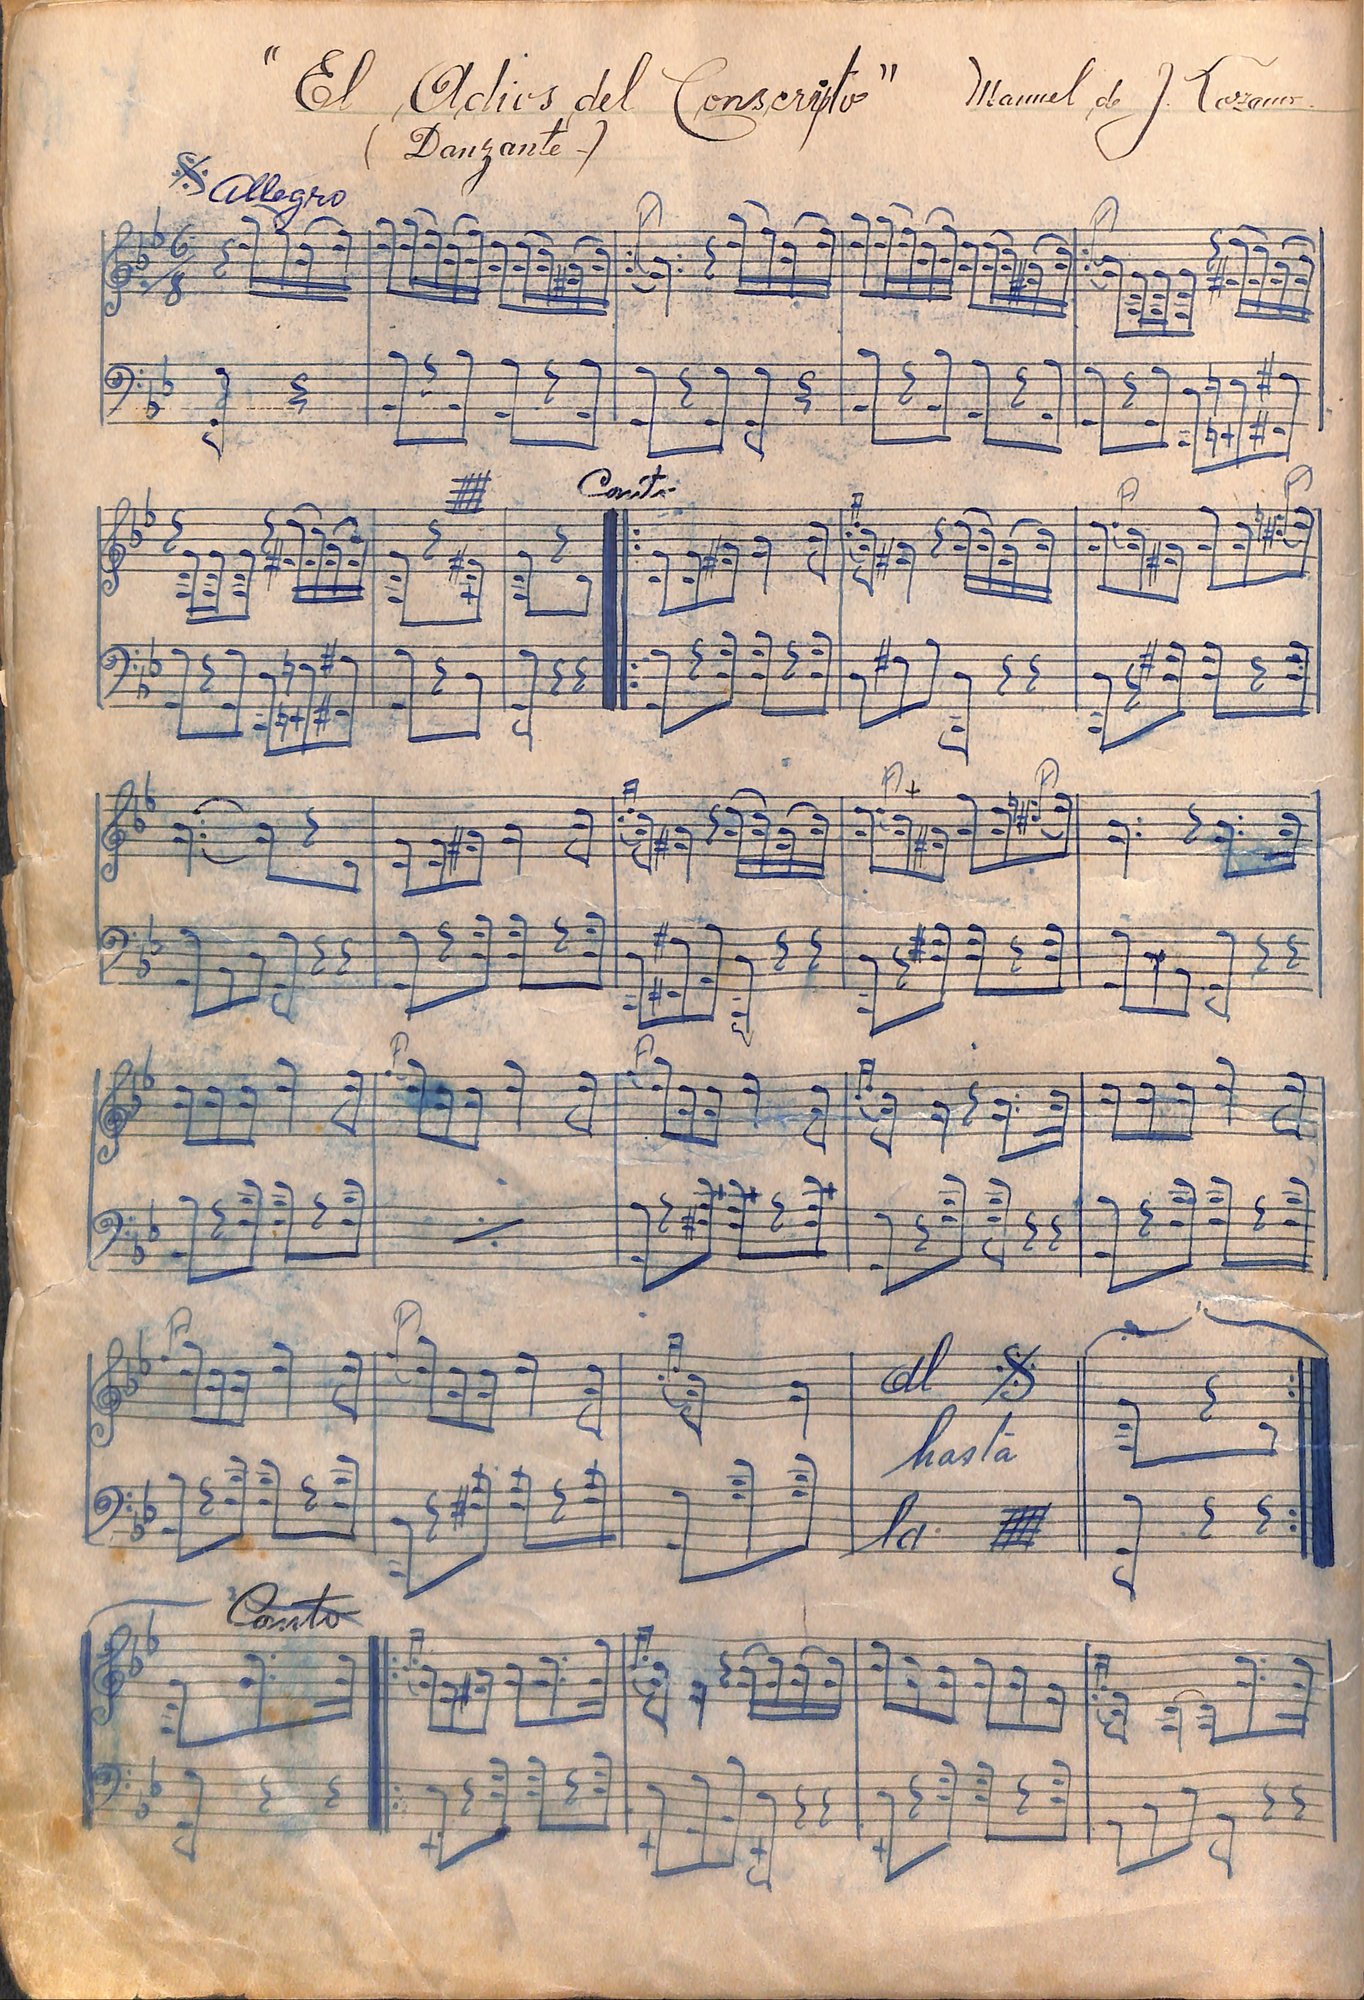 "El Adios del Conscripto" Manuel de J. Lozano.
(Danzante-)
Allegro
6
8
Canto
al
hasta
la
Canto